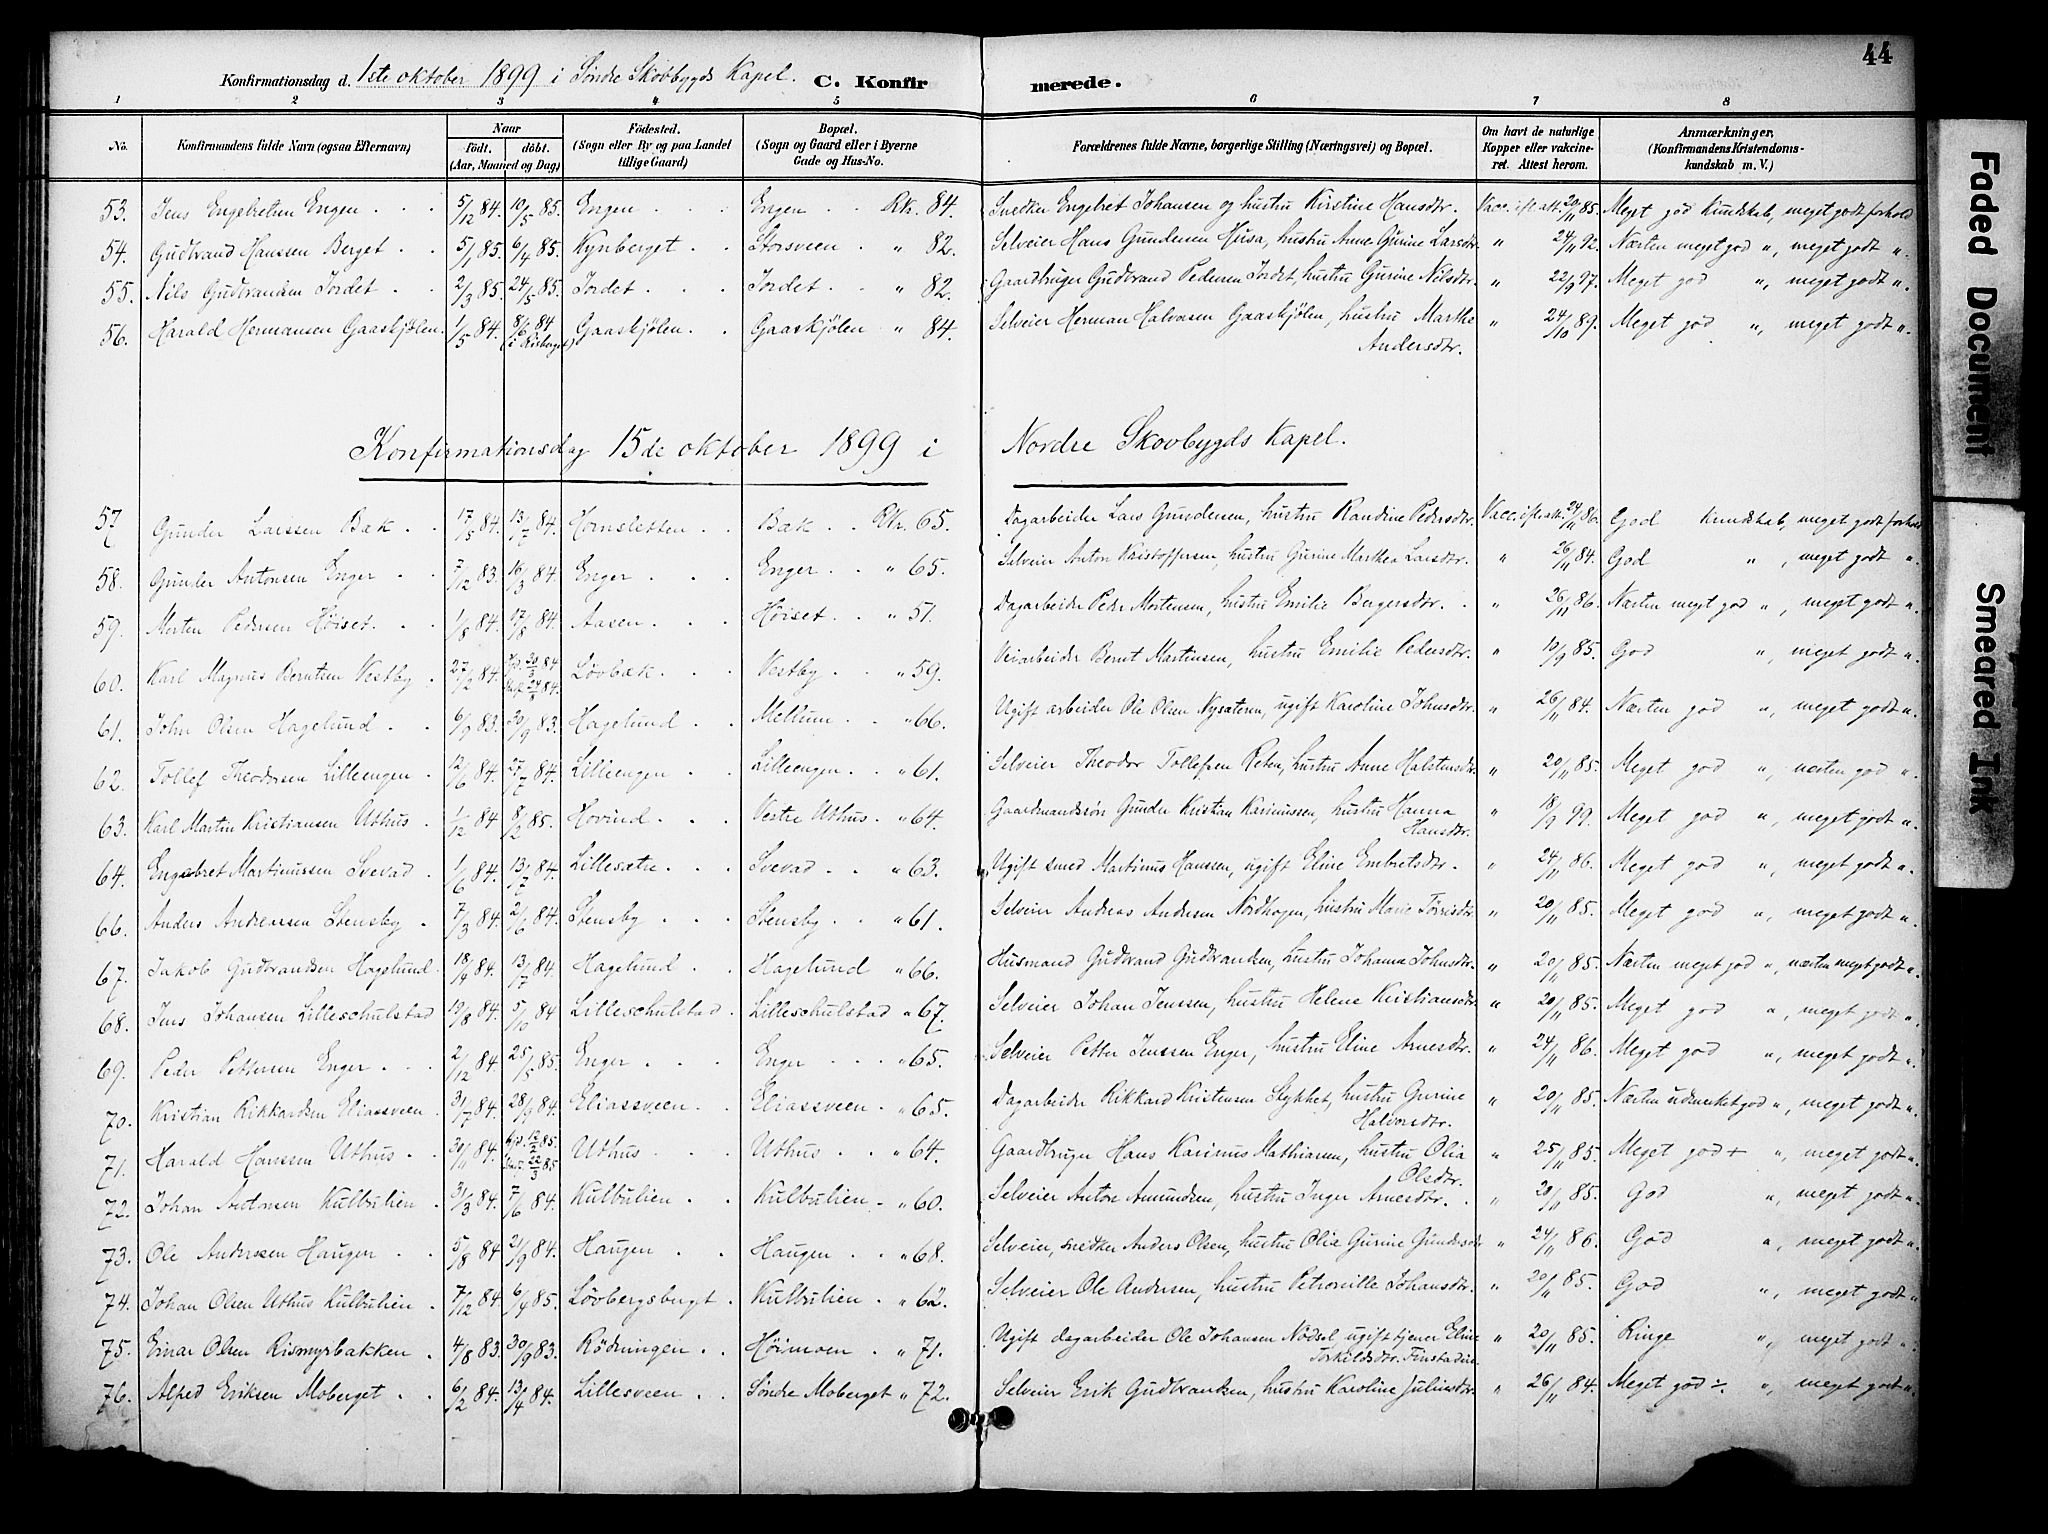 44
Konfirmationsdag d. 1ste oktober 1899 i Søndre Skovbygds Kapel. C. Konfirmerede.
1 2 3 4 5 6 7 8
No. Konfirmandens fulde Navn (ogsaa Efternavn) Naar født. døbt. (Aar, Maaned og Dag) Fødested. (Sogn eller By og paa Landet tillige Gaard) Bopæl. (Sogn og Gaard eller i Byerne Gade og Hus-No. Forældrenes fulde Navne, borgerlige Stilling (Næringsvei) og Bopæl. Om havt de naturlige Kopper eller vakcineret. Attest herom. Anmærkninger. (Konfirmandens Kristendomskundskab m. V.)
53. Jens Engebretsen Engen 5/12 84. 10/5 85. Engen Engen Rkr. 84. Snedker Engebret Johansen og hustru Kirstine Hansdtr. Vacc. ift. att. 20/11 85. Meget god Kundskab, meget godt forhold
54. Gudbrand Hanssen Berget 5/1 85. 6/4 85. Kynberget Storsveen " 82. Selveier Hans Gundersen Husa, hustru Anne Gurine Larsdtr. " 24/11 92. Næsten meget god ", meget godt ".
55. Nils Gudbrandsen Jordet 2/3 85. 24/5 85. Jordet Jordet " 82. Gaardbruger Gudbrand Pedersen Jordet, hustru Gurine Nilsdtr. " 22/9 97. Meget god ", meget godt ".
56. Harald Hermansen Gaaskjølen. 1/5 84. 8/6 84 (i Risberget) Gaaskjølen. Gaaskjølen " 84. Selveier Herman Halvorsen Gaaskjølen, hustru Marthe Andersdtr. " 24/10 89. Meget god ", meget godt ".
Konfirmationsdag 15de oktober 1899 i Nordre Skovbygds Kapel.
57 Gunder Larssen Bæk 17/5 84. 13/7 84. Hornsletten Bæk Rkr. 65. Dagarbeider Lars Gundersen, hustru Randine Pedersdtr. Vacc. ifte att. 24/11 86. God Kundskab, meget godt forhold
58. Gunder Antonsen Enger 7/12 83. 16/3 84. Enger Enger " 65. Selveier Anton Kristoffersen, hustru Gurine Marthea Larsdtr. " 26/11 84. God ", meget godt ".
59. Morten Pedersen Høiset. 1/8 84. 17/8 84. Aasen Høiset " 51. Dagarbeider Peder Mortensen, hustru Emilie Bergersdtr. " 26/11 86. Næsten meget god ", meget godt ".
60. Karl Magnus Berntsen Vestby 27/2 84. 84 84. Løvbæk Vestby " 59. Veiarbeider Bernt Martinsen, hustru Emilie Pedersdtr. " 10/9 85. God ", meget godt ".
61. John Olsen Hagelund 6/9 83. 30/9 83. Hagelund Mellum " 66. Ugift arbeider Ole Olsen Nysæteren, ugift Karoline Johnsdtr. " 26/11 84. Næsten god ", meget godt ".
62. Tollef Theodorsen Lilleengen 12/6 84. 27/7 84. Lilleengen Lilleengen " 61. Selveier Theodor Tollefsen Reten, hustru Anne Halstensdtr. " 20/11 85. Meget god ", næsten god ".
63. Karl Martin Kristiansen Uthus. 1/12 84 8/2 85. Hovind Vestre Uthus " 64. Gaardmandssøn Gunder Kristian Karinussen, hustru Hanna Hansdtr. " 18/9 99. Meget god ", meget godt ".
64. Engebret Martinussen Svevad 1/6 84. 13/7 84. Lillesætre Svevad " 63. Ugift smed Martinus Hanssen, ugift Eline Embretsdtr. " 24/11 86. Meget god ", meget godt ".
66. Anders Andreassen Stensby 7/3 84. 2/6 84. Stensby Stensby " 61. Selveier Andreas Andersen Nordhagen, hustru Marie Tørrisdtr. " 20/11 85. Meget god ", meget godt ".
67. Jakob Gudbrandsen Hagelund. 18/4 84. 13/7 84. Hagelund Hagelund " 66. Husmand Gudbrand Gudbrandsen, hustru Johanna Johnsdtr. " 20/11 85. Næsten meget god ", næsten meget godt ".
68. Jens Johansen Lilleschulstad 19/8 84. 5/10 84 Lilleschulstad. Lilleschulstad " 67. Selveier Johan Jenssen, hustru Helene Kristiansdtr. " 20/11 85. Meget god ", meget godt ".
69. Peder Pettersen Enger 2/12 84. 25/5 85. Enger Enger " 65. Selveier Petter Jenssen Enger, hustru Eline Arnesdtr. " 24/11 86. Meget god ", meget godt ".
70. Kristian Rikkardsen Eliassveen. 31/7 84. 28/9 84. Eliassveen. Eliassveen " 65. Dagarbeider Rikkard Kristensen Stykket, hustru Gurine Halvorsdtr. " 20/11 85. Næsten udmerket god ", meget godt ".
71. Harald Hanssen Uthus 30/11 84. 12/2 85. 22/3 85 Uthus Uthus " 64. Gaardbruger Hans Karinus Mathiasen, hustru Olia Olsdtr. " 25/11 85. Meget god + ", meget godt ".
72. Johan Antonsen Kulbulien 31/3 84. 7/6 84. Kulbulien Kulbulien " 60. Selveier Anton Amundsen, hustru Inger Arnesdtr. " 20/11 85. God ", meget godt ".
73. Ole Anderssen Haugen 5/8 84 21/9 84. Haugen Haugen " 68. Selveier, snedker Anders Olsen, hustru Olia Gurine Gundersdtr " 24/11 86. God ", meget godt ".
74. Johan Olsen Uthus Kulbulien 7/12 84. 6/4 85. Løvbergsberget Kulbulien " 62. Selveier Ole Andersen, hustru Petronille Johansdtr. " 20/11 85. God ", meget godt ".
75. Einar Olsen Rismyrbakken 4/8 83. 30/9 83. Rødningen Høimoen " 71. Ugift dagarbeider Ole Johansen Nødsel ugift tjener Eline Torkildsdtr. Finstadeie " 20/11 85. Ringe ", meget godt ".
76. Alfred Eriksen Moberget 6/2 84. 13/4 84. Lillesveen Søndre Moberget " 72. Selveier Erik Gudbrandsen, hustru Karoline Juliusdtr. " 26/11 84. Meget god ÷. ", meget godt ".
Faded Document
Smeared Ink